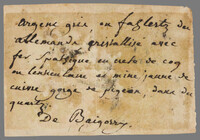 argent gris, ou fahlertz des
allemands, cristallisé avec
fer spathique en crete de coq
ou lenticulaire et mine jaune de
cuivre gorge de pigeon, dans du
quartz.
De Baigorry